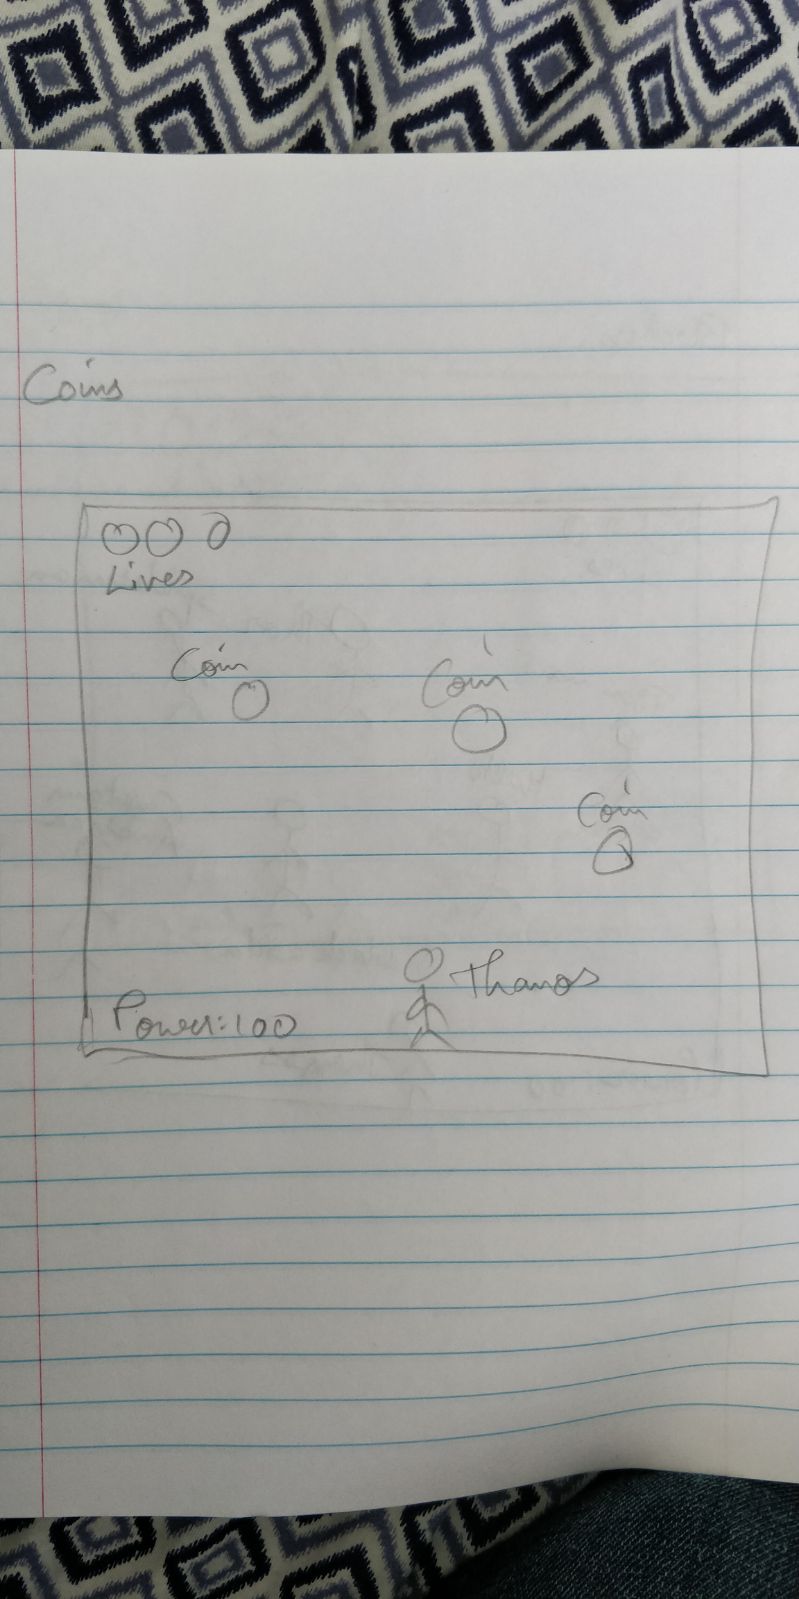 Coins
Lives
Coin
Coin
Coin
Thanos
Power:100